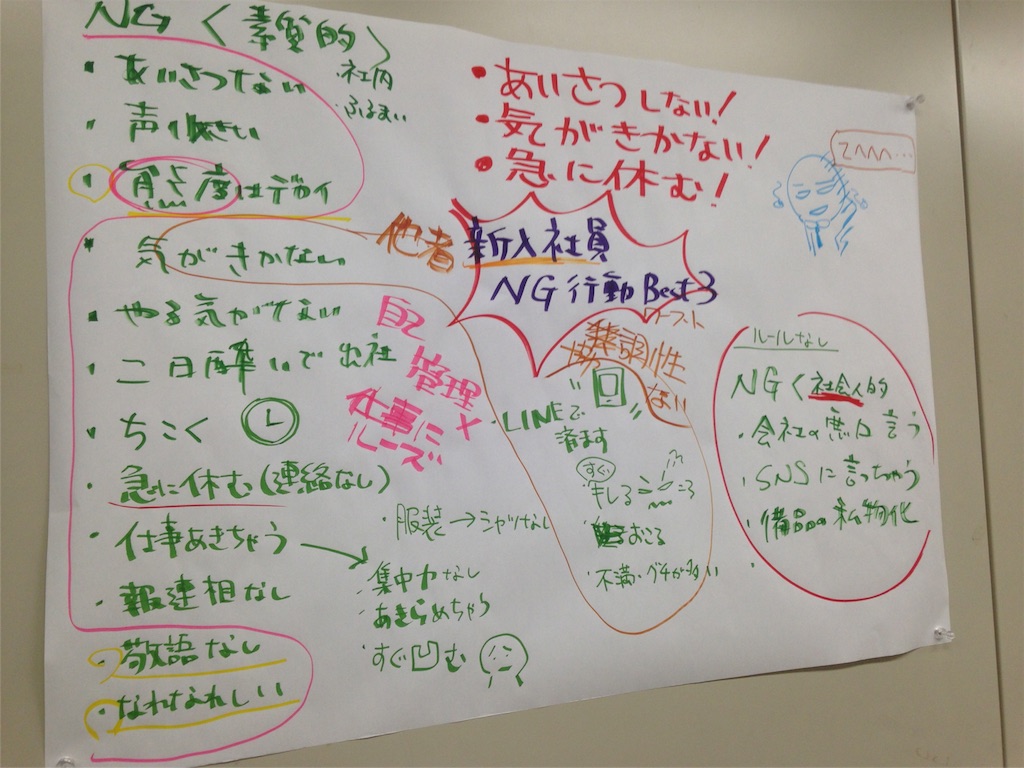 NG く素質的〉
・あいさつない
・声小さい
・態度はデカイ
社内
ふるまい
・気がきかない
・やる気がでない
・二日酔いで出社
・ちこく
・急に休む(連絡なし)
・仕事あきちゃう
・報連相なし
・敬語なし
・なれなれしい
・あいさつしない!
・気がきかない!
・急に休む!
他者
新入社員
NG行動Best3
ワースト
自己
管理
仕事に
ルーズ
協調性
ない
・LINEで
済ます
すぐ
キレる
おこる
・不満・グチが多い
・服装→シャツなし
・集中力なし
・あきらめちゃう
・すぐ凹む
ルールなし
NGく社会人的
・会社の悪口言う
・SNSに言っちゃう
・備品の私物化